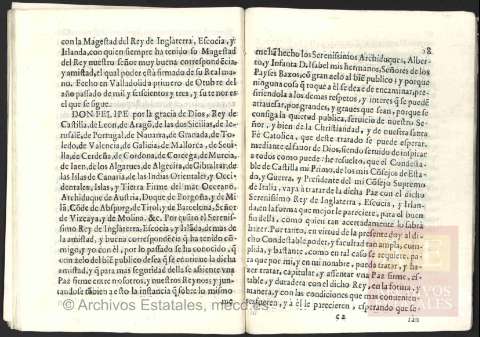 con la Magestad del Rey de Inglaterra, Escocia, y
Irlanda, con quien siempre ha tenido su Magestad
del Rey nuestro señor muy buena correspondēcia,
y amistad, el qual poder està firmado de su Real ma-
no. Fecho en Valladolid a primero de Otubre del
año passado de mil y seiscientos y tres, y su tenor es
el que se sigue.
DON FELIPE por la gracia de Dios, Rey de
Castilla, de Leon, de Aragō, de las dos Sicilias, de Ie-
rusalē, de Portugal, de Nauarra, de Granada, de To-
ledo, de Valencia, de Galicia, de Mallorca, de Seui-
lla, de Cerdeña, de Cordoua, de Corcega, de Murcia,
de Iaen, de los Algarues, de Algezira, de Gibraltar, de
las Islas de Canaria, de las Indias Orientales, y Occi-
dentales, Islas, y Tierra Firme del mar Oceano,
Archiduque de Austria, Duque de Borgoña, y de Mi
lā, Cōde de Abspurg, de Tirol, y de Barcelona, Señor
de Vizcaya, y de Molina, &c. Por quāto el Serenis-
simo Rey de Inglaterra, Escocia, y Irlāda, demas de
la amistad, y buena correspondēcia q̄ ha tenido cō-
migo, y yo con el, por lo passado se ha conocido, q̄
con zelo del biē publico dessea q̄ se continue la dicha
amistad, y q̄ para mas seguridad della se assiente vna
Paz firme entre nosotros, y nuestros Reynos; y jun-
tandose tābien a esto la instancia q̄ sobre lo mismo
me
28.
me hā hecho los Serenissimos Archiduques, Alber-
to, y Infanta D. Isabel mis hermanos, Señores de los
Payses Baxos, cō gran zelo al biē publico; y porque
ninguna cosa q̄ toque a el se dexe de encaminar, pre-
firiendola a los demas respetos, y interes q̄ se puedē
atrauesar, por grandes, y graues que sean, porque se
consiga la quietud publica, seruicio de nuestro Se-
ñor, y bien de la Christiandad, y de nuestra santa
Fè Catolica, que deste tratado se puede esperar,
mediante el fauor de Dios, siendo seruido de inspirar
a todos como puede: he resuelto, que el Condesta-
ble de Castilla mi Primo, de los mis Cōsejos de Esta-
do, y Guerra, y Presidente del mi Cōsejo Supremo
de Italia, vaya a tratar de la dicha Paz con el dicho
Serenissimo Rey de Inglaterra, Escocia, y Irlan-
da, en la forma que mejor le pareciere, para el buen
fin della, como quien tan acertadamente lo sabrà
tratar. Por tanto, en virtud de la presente doy al di-
cho Condestable poder, y facultad tan ampla, cum-
plida, y bastante, como en tal caso se requiere, pa-
ra que por mi, y en mi nombre, pueda tratar, y ha-
zer tratar, capitular, y assentar vna Paz firme, es-
table, y duradera con el dicho Rey, en la forma, y
manera, y con las condiciones que mas conuenien-
tes fueren, y a èl le parecieren, esperando que se-
C 2
© Archivos Estatales, mecd.es